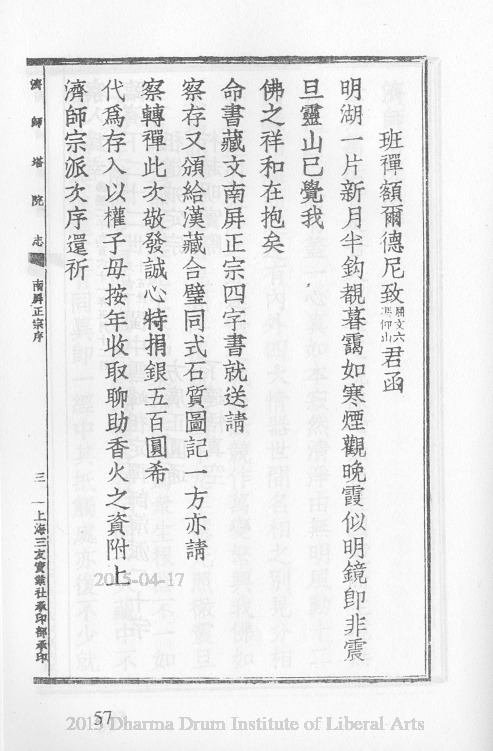 班禪額爾德尼致關文六馮仰山君函
明湖一片新月半鈎覩暮靄如寒煙觀晚霞似明鏡卽非震
旦靈山已覺我
佛之祥和在抱矣
命書藏文南屏正宗四字書就送請
察存又頒給漢藏合璧同式石質圖記一方亦請
察轉禪此次敬發誠心特捐銀五百圓希
代爲存入以權子母按年收取聊助香火之資附上
濟師宗派次序還祈
濟師塔院志
南屏正宗序
三
上海三友實業社承印部承印
2015-04-17
57
2015 Dharma Drum Institute of Liberal Arts